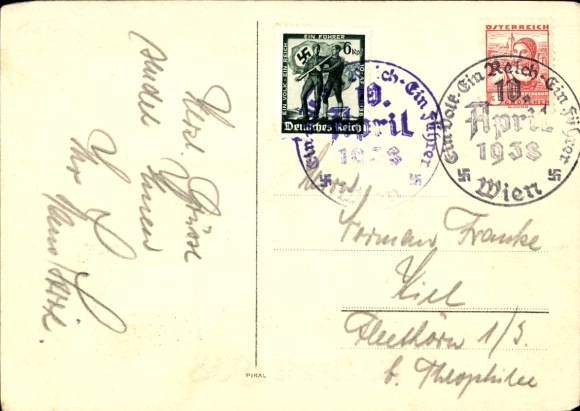 Herzl. Grüsse
sendet Ihnen
Ihr
EIN VOLK · EIN REICH
EIN FÜHRER
6 Rpf
Deutsches Reich
10. April 1938
Ein Volk · Ein Reich · Ein Führer
10.
April
1938
ÖSTERREICH
Ein Volk · Ein Reich · Ein Führer
10.
April
1938
Wien
Herrn
Herman Franke
Kiel
Fleethörn 1/3.
b. Theophilee
PIKAL